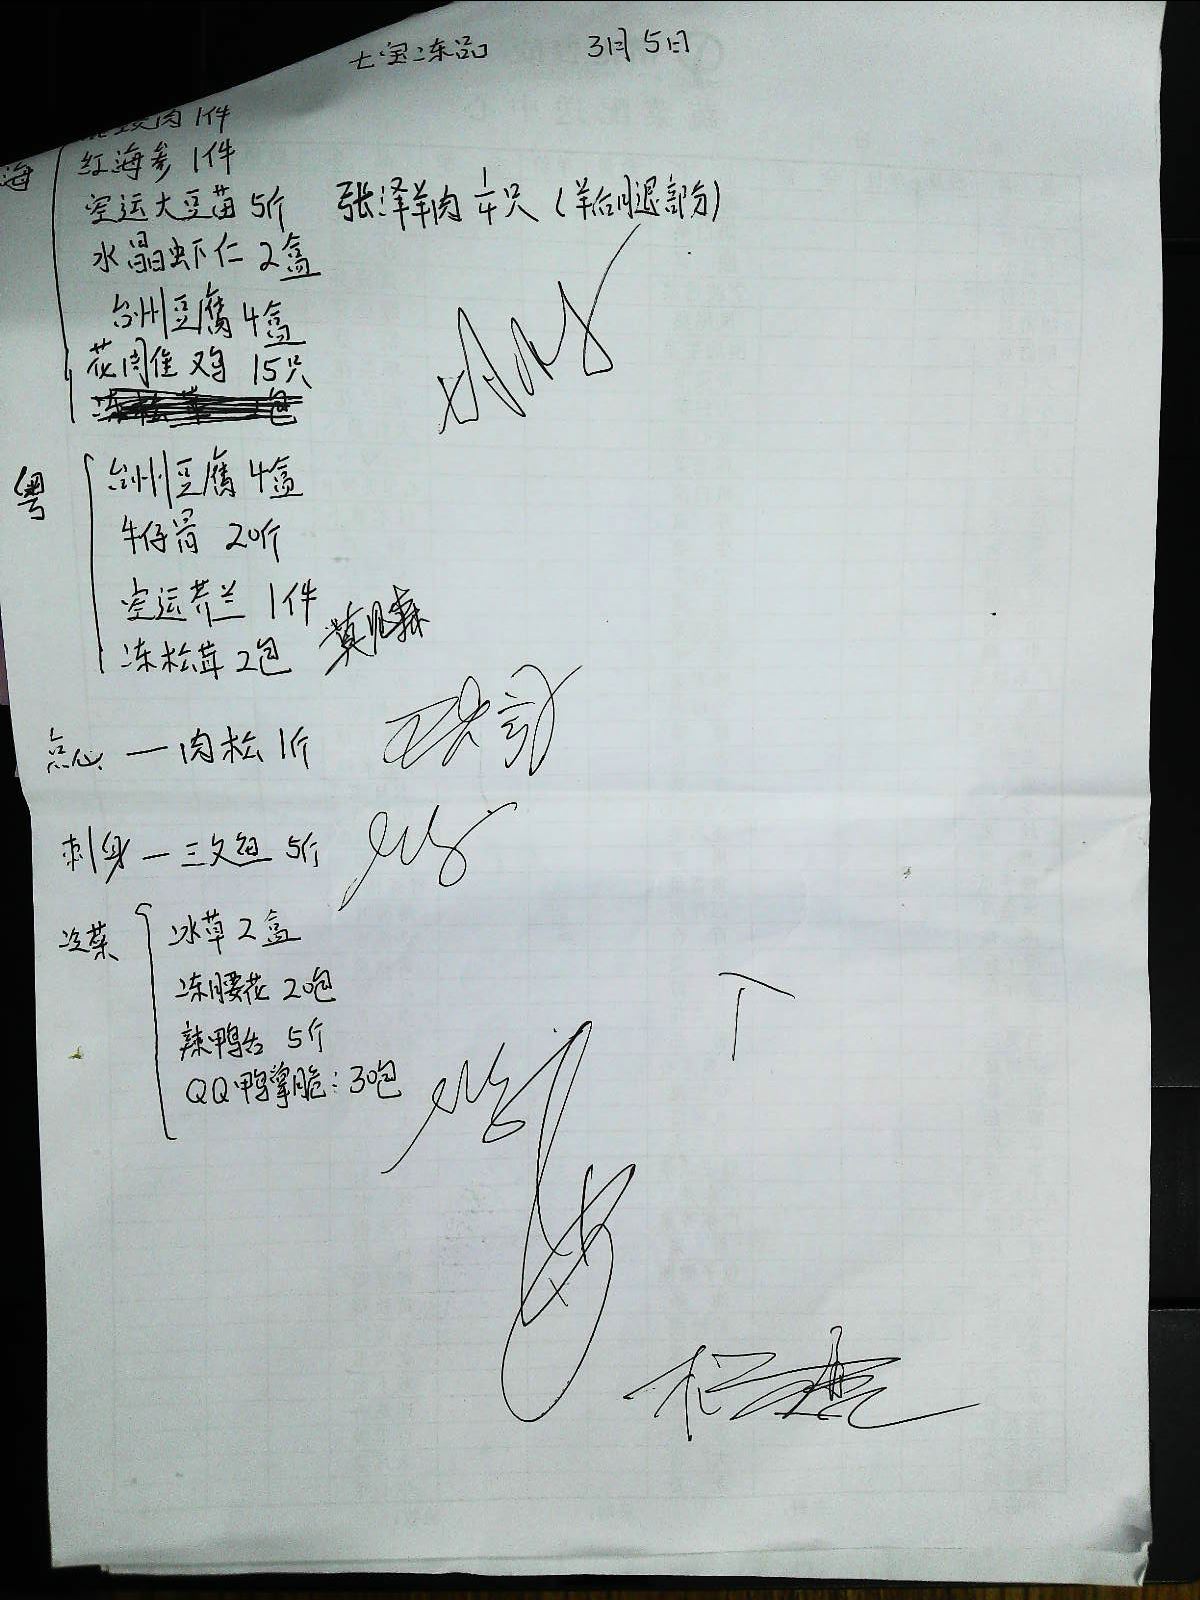 七宝冻品 3月5日
肉 1件
海
红海参 1件
空运大豆苗 5斤 张泽羊肉 1/4只 (羊后腿部分)
水晶虾仁 2盒
台州豆腐 4盒
鸡 15只
粤
台州豆腐 4盒
牛仔骨 20斤
空运芥兰 1件
冻松茸 2包
点心 — 肉松 1斤
刺身 — 三文鱼 5斤
冷菜
冰草 2盒
冻腰花 20包
辣鸭舌 5斤
QQ鸭掌脆: 30包